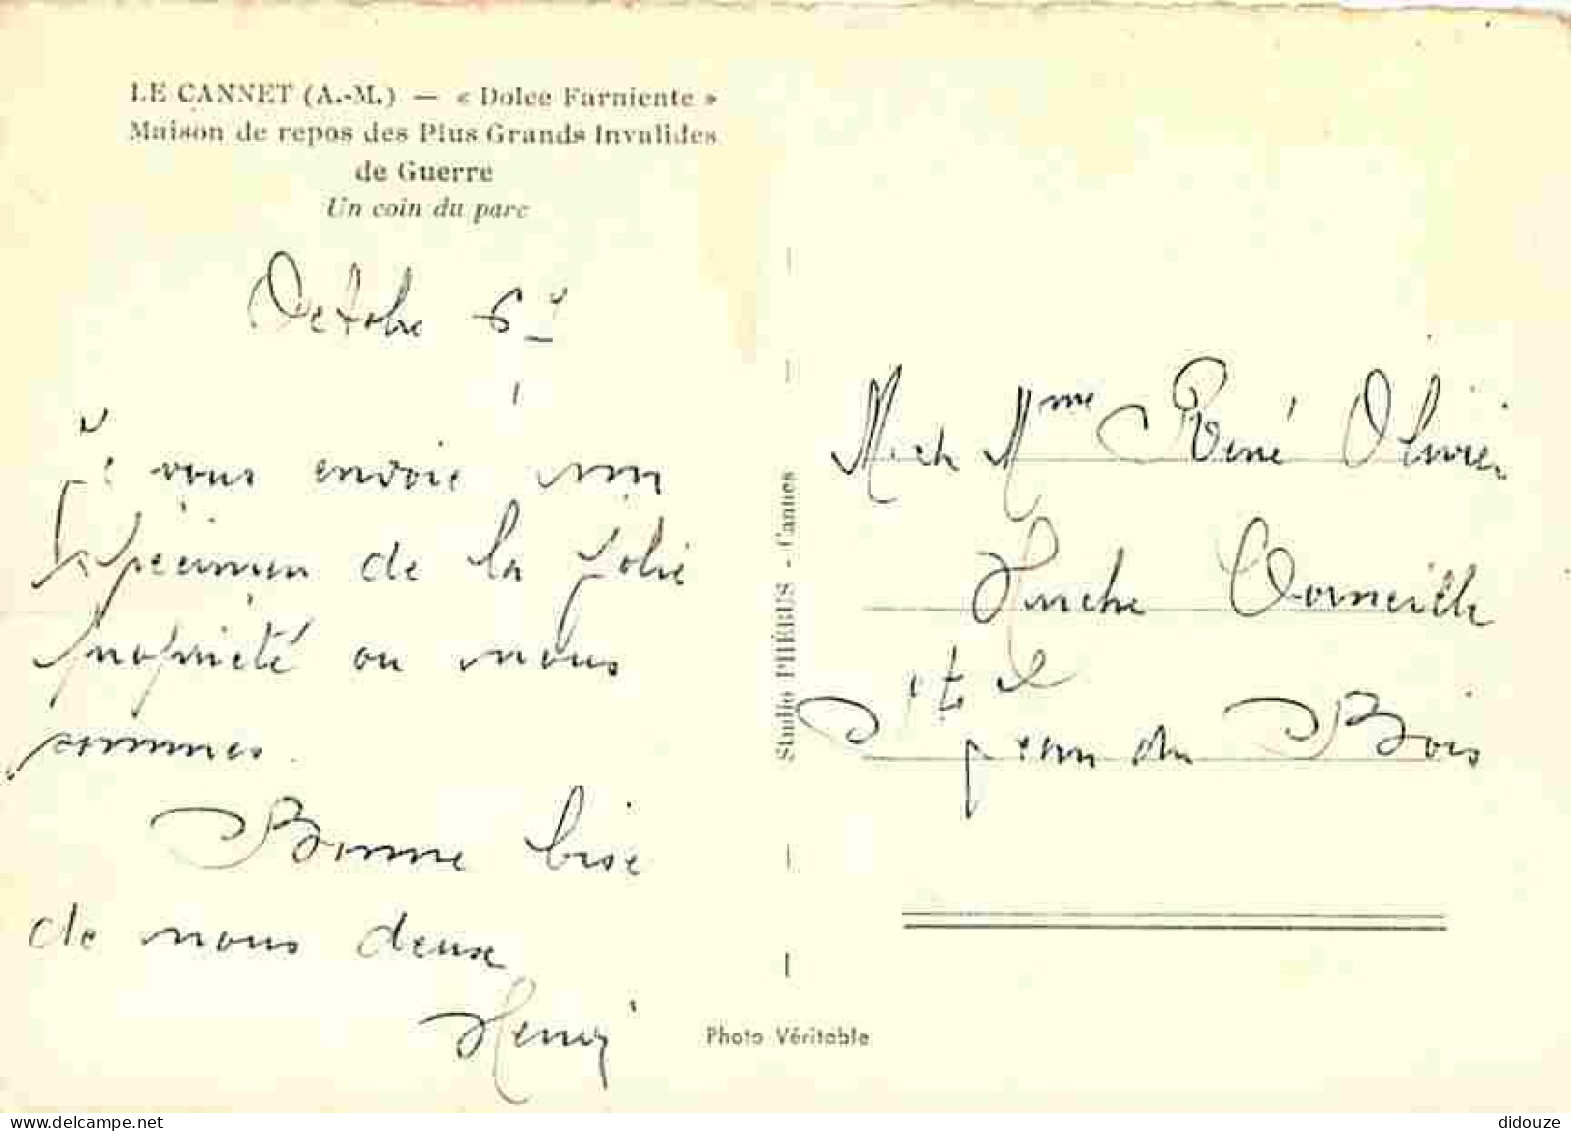 LE CANNET (A.-M.) — « Dolce Farniente »
Maison de repos des Plus Grands Invalides
de Guerre
Un coin du parc
Octobre
Je vous envoie un
spécimen de la jolie
propriété ou nous
sommes.
Bonne bise
de nous deux
Henri
Studio PHÉBUS - Cannes
Photo Véritable
M et Mme René Olivier
Corneille
du Bois
delcampe.net
didouze